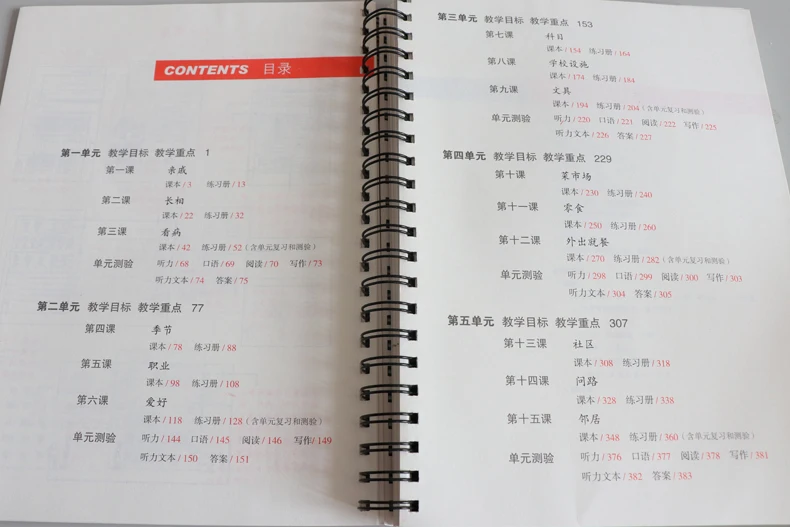 CONTENTS 目录
第一单元 教学目标 教学重点 1
第一课 亲戚
课本/3 练习册/13
第二课 长相
课本/22 练习册/32
第三课 看病
课本/42 练习册/52(含单元复习和测验)
单元测验 听力/68 口语/69 阅读/70 写作/73
听力文本/74 答案/75
第二单元 教学目标 教学重点 77
第四课 季节
课本/78 练习册/88
第五课 职业
课本/98 练习册/108
第六课 爱好
课本/118 练习册/128(含单元复习和测验)
单元测验 听力/144 口语/145 阅读/146 写作/149
听力文本/150 答案/151
第三单元 教学目标 教学重点 153
第七课 科目
课本/154 练习册/164
第八课 学校设施
课本/174 练习册/184
第九课 文具
课本/194 练习册/204(含单元复习和测验)
单元测验 听力/220 口语/221 阅读/222 写作/225
听力文本/226 答案/227
第四单元 教学目标 教学重点 229
第十课 菜市场
课本/230 练习册/240
第十一课 零食
课本/250 练习册/260
第十二课 外出就餐
课本/270 练习册/282(含单元复习和测验)
单元测验 听力/298 口语/299 阅读/300 写作/303
听力文本/304 答案/305
第五单元 教学目标 教学重点 307
第十三课 社区
课本/308 练习册/318
第十四课 问路
课本/328 练习册/338
第十五课 邻居
课本/348 练习册/360(含单元复习和测验)
单元测验 听力/376 口语/377 阅读/378 写作/381
听力文本/382 答案/383